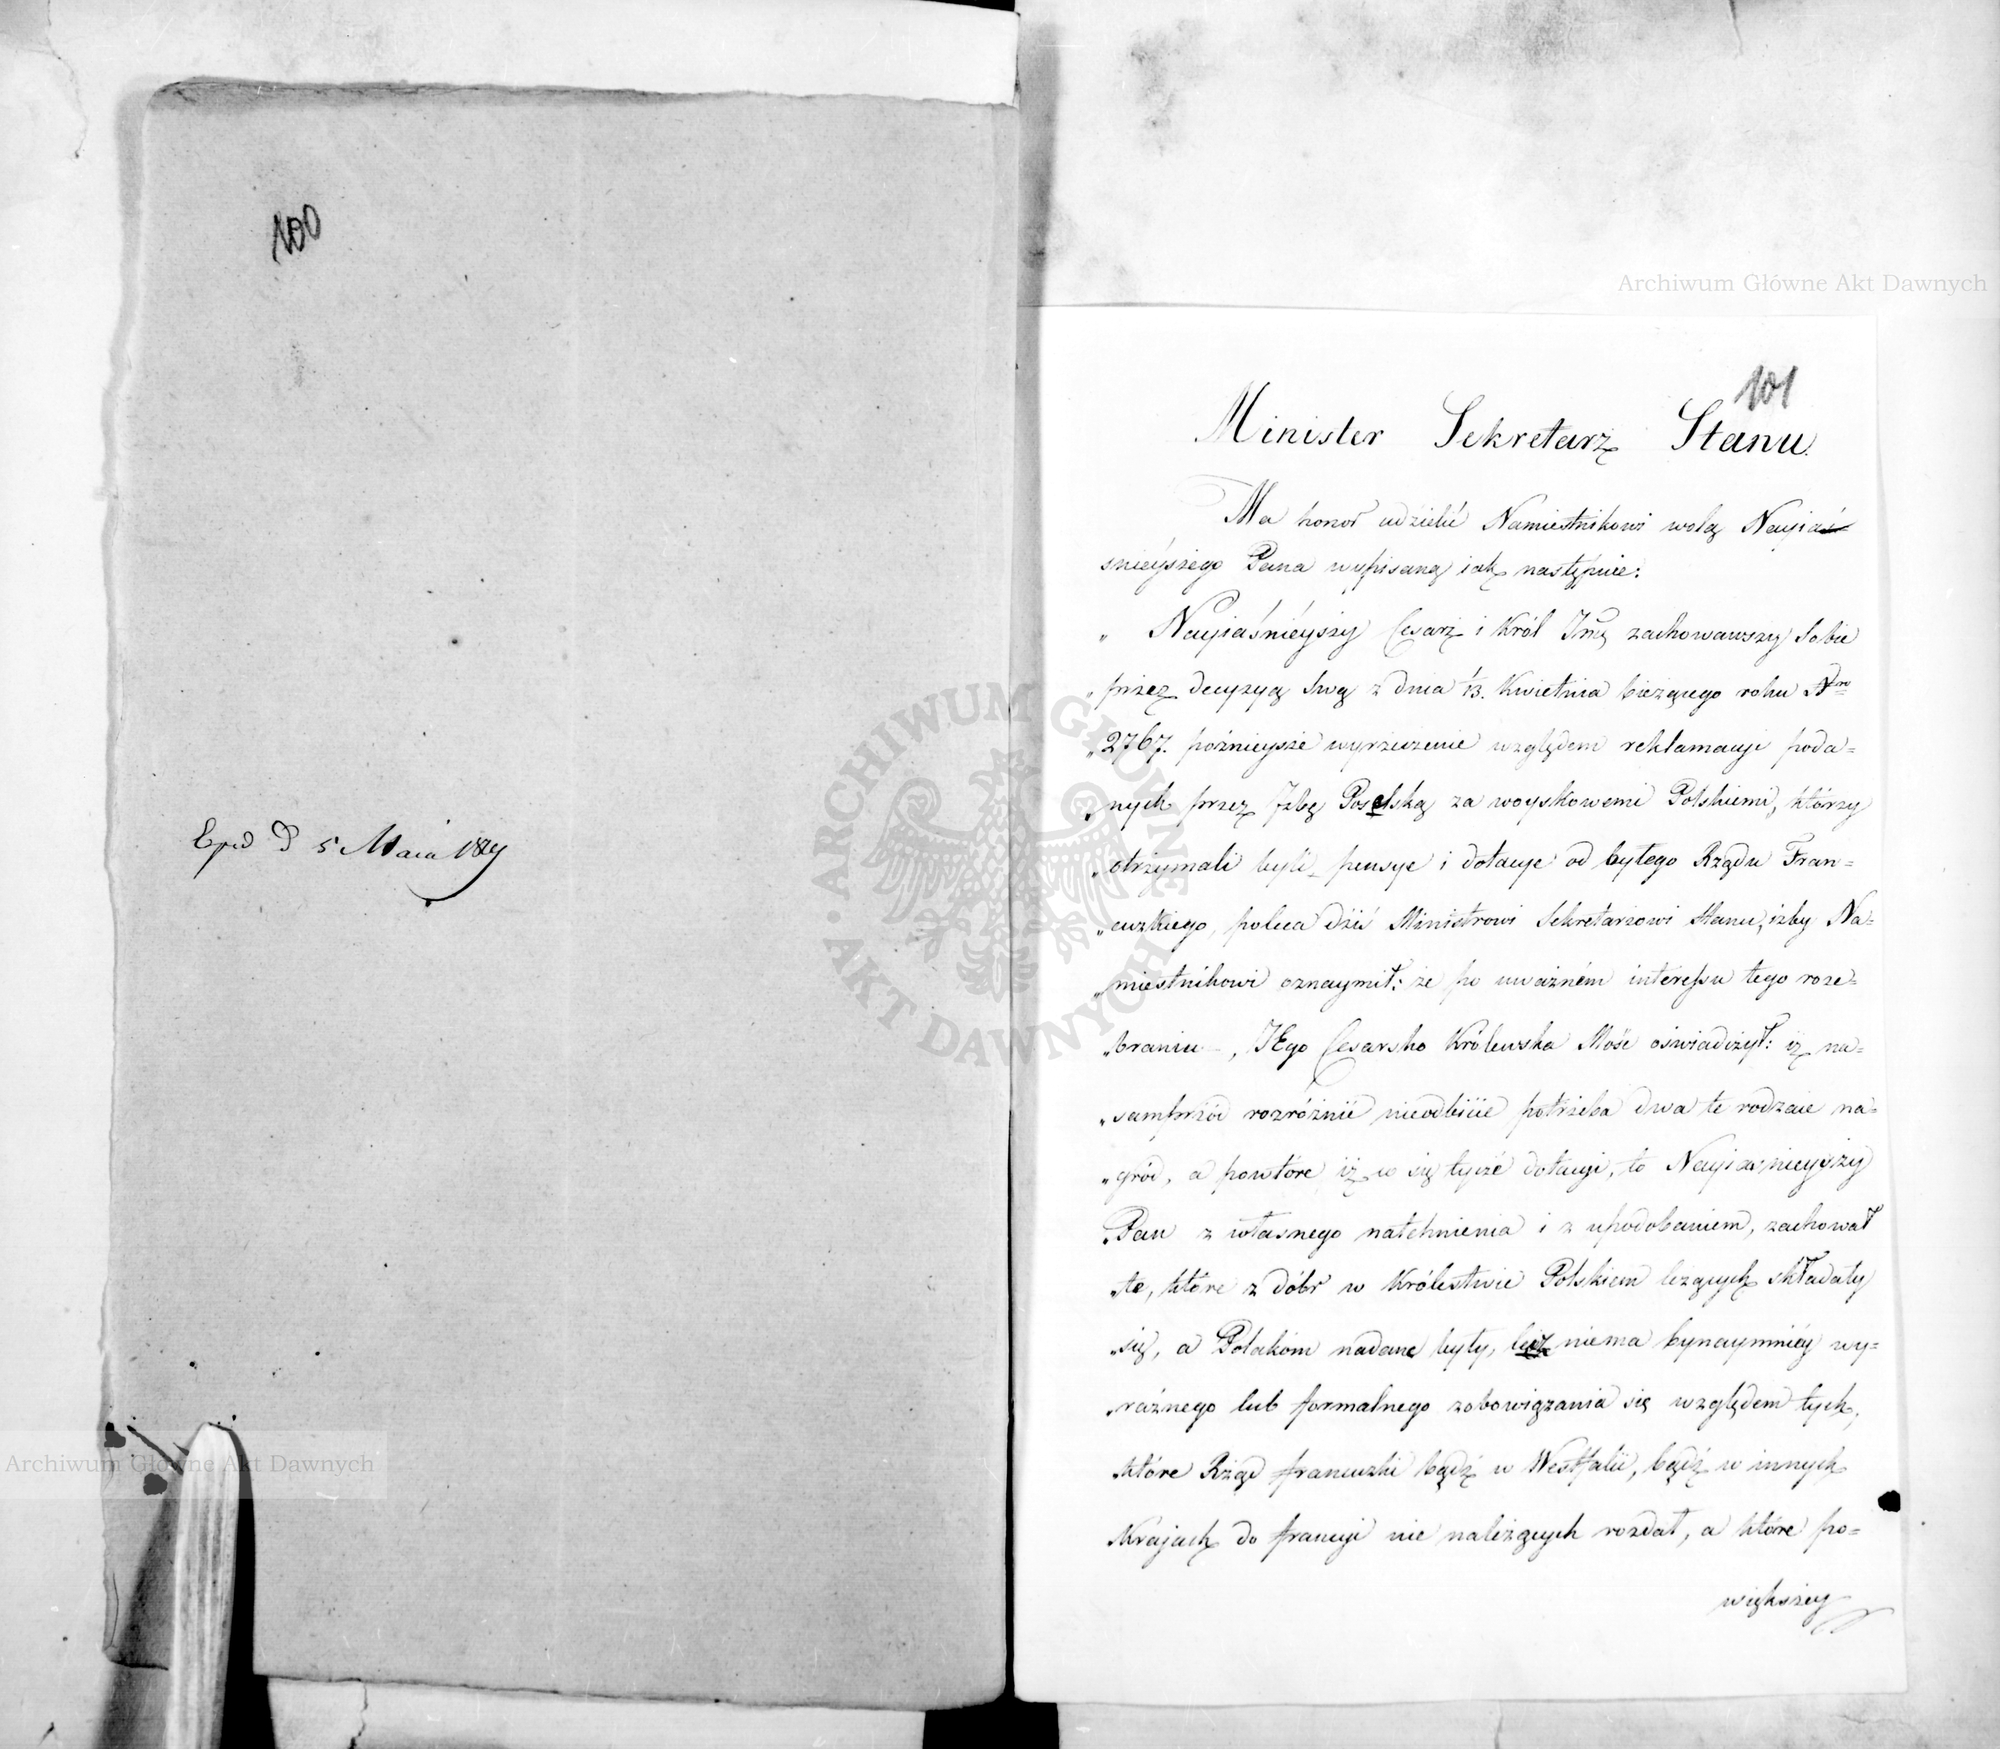 100
5 Maia
101
Minister Sekretarz Stanu.
Ma honor udzielić Namiestnikowi wolą Nayia-
śnieyszego Pana wypisaną iak następuie:
„ Nayiaśnieyszy Cesarz i Król Jmć zachowawszy Sobie
„ przez decyzyą Swą z dnia 13. Kwietnia bieżącego roku Nro
„ 2767. poźnieysze wyrzeczenie względem reklamacyi poda=
„ nych przez Izbę Poselską za woyskowemi Polskiemi, którzy
„ otrzymali byli pensye i dotacye od byłego Rządu Fran=
„ cuzkiego, poleca dziś Ministrowi Sekretarzowi Stanu, iżby Na=
„ miestnikowi oznaymił: że po uważném interessu tego roze=
„ braniu, JEgo Cesarsko Królewska Mość oświadczył: iż na=
„ samprzód rozróżnić nieodbicie potrzeba dwa te rodzaie na=
„ gród, a powtóre iż w się tycze dotacyi, to Nayiaśnieyszy
„ Pan z własnego natchnienia i z upodobaniem, zachował
„ te, które z dóbr w Królestwie Polskiem leżących składały
„ się, a Polakom nadane były, lecz niema bynaymniéy wy=
„ raźnego lub formalnego zobowiązania się względem tych,
„ które Rząd francuzki bądź w Westfalii, bądź w innych
„ Krajach do francyi nie należących rozdał, a które po=
większey
ARCHIWUM GŁÓWNE AKT DAWNYCH
Archiwum Główne Akt Dawnych
Archiwum Główne Akt Dawnych